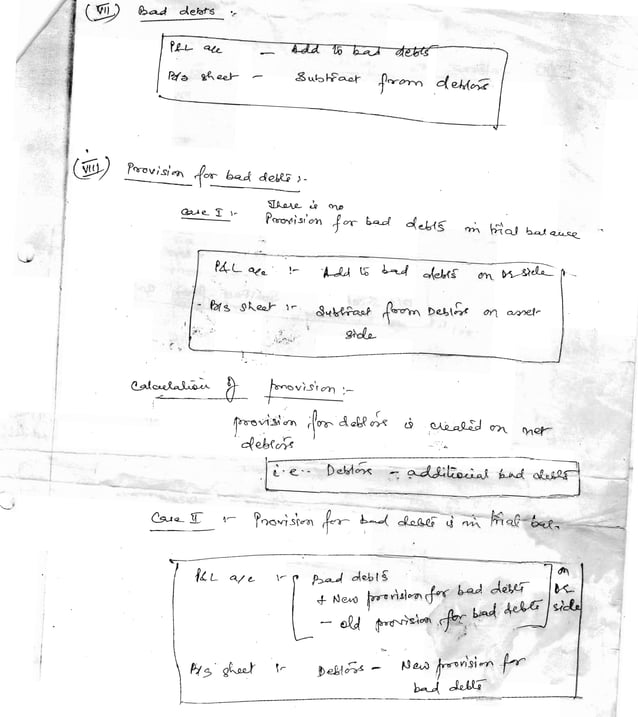 (VII) Bad debts :-
P&L a/c - Add to bad debts
B/s sheet - Subtract from debtors
(VIII) Provision for bad debts :-
There is no
Case I :- Provision for bad debts in trial balance
P&L a/c :- Add to bad debts on Dr side
B/s sheet :- Subtract from Debtors on asset
side
Calculation of provision :-
provision for debtors is created on net
debtors
i.e.. Debtors - additiocial bad debts
Case II :- Provision for bad debts is in trial bal.
P&L a/c :- Bad debts
+ New provision for bad debts
- old provision for bad debts
on Dr side
B/s sheet :- Debtors - New provision for
bad debts